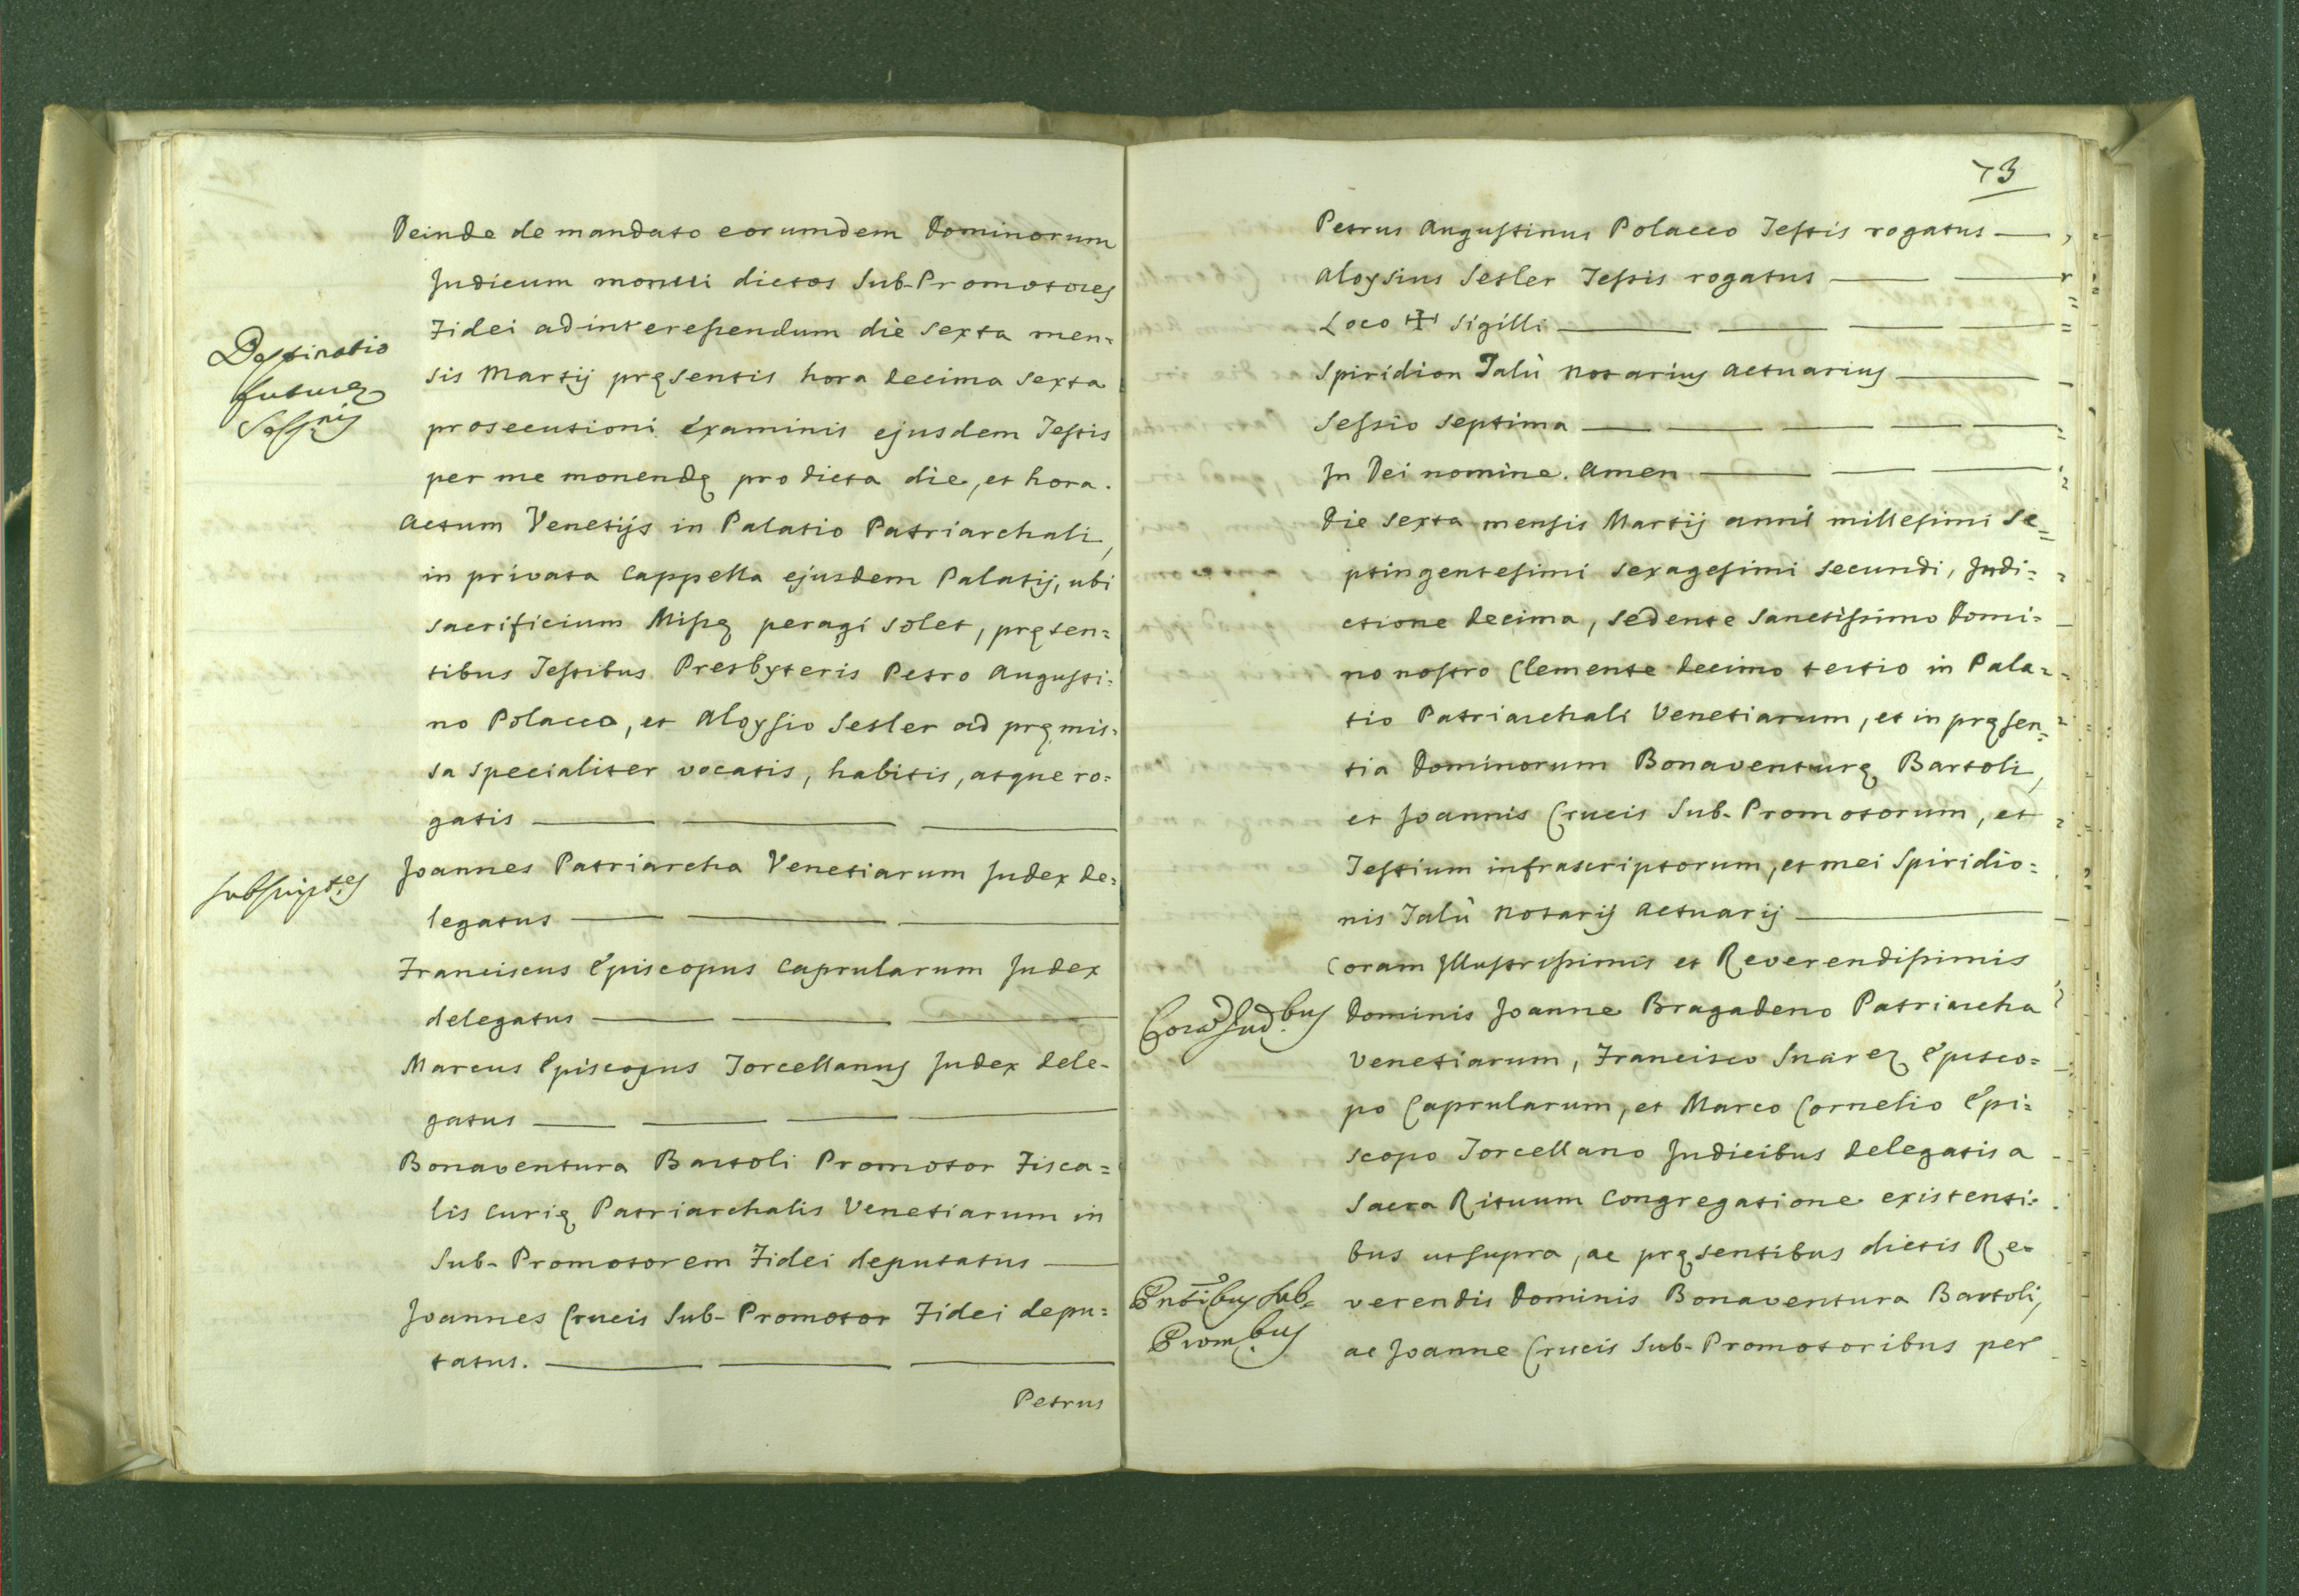 Deinde de mandato eorumdem Dominorum
Judicum monui dictos Sub-Promotores
Fidei ad interessendum die sexta men=
Destinatio
futuræ
Sess.nis
sis Martij pręsentis hora decima sexta
prosecutioni examinis ejusdem Testis
per me monendę pro dicta die, et hora.
Actum Venetijs in Palatio Patriarchali,
in privata Cappella ejusdem Palatij, ubi
sacrificium Missę peragi solet, pręsen=
tibus Testibus Presbyteris Petro Augusti=
no Polacco, et Aloysio Setler ad pręmis=
sa specialiter vocatis, habitis, atque ro=
gatis
subscript.es
Joannes Patriarcha Venetiarum Judex de=
legatus
Franciscus Episcopus Caprularum Judex
delegatus
Marcus Episcopus Torcellanus Judex dele=
gatus
Bonaventura Bartoli Promotor Fisca=
lis Curię Patriarchalis Venetiarum in
Sub-Promotorem Fidei deputatus
Joannes Crucis Sub-Promotor Fidei depu=
tatus.
Petrus
73
Petrus Augustinus Polacco Testis rogatus
Aloysius Setler Testis rogatus
Loco ✠ Sigilli
Spiridion Talù Notarius Actuarius
Sessio septima
In Dei nomine. Amen
Die sexta mensis Martij anni millesimi se=
ptingentesimi sexagesimi secundi, Indi=
ctione decima, sedente Sanctissimo Domi=
no nostro Clemente decimo tertio in Pala=
tio Patriarchali Venetiarum, et in pręsen=
tia Dominorum Bonaventurę Bartoli,
et Joannis Crucis Sub-Promotorum, et
Testium infrascriptorum, et mei Spiridio=
nis Talù Notarij Actuarij
Coram Illustrissimis et Reverendissimis
Corā Jud.bus
Dominis Joanne Bragadeno Patriarcha
Venetiarum, Francisco Suarez Episco=
po Caprularum, et Marco Cornelio Epi=
scopo Torcellano Judicibus delegatis a
Sacra Rituum Congregatione existenti=
bus ut supra, ac pręsentibus dictis Re=
Pntibus Sub=
Prom.bus
verendis Dominis Bonaventura Bartoli,
ac Joanne Crucis Sub-Promotoribus per